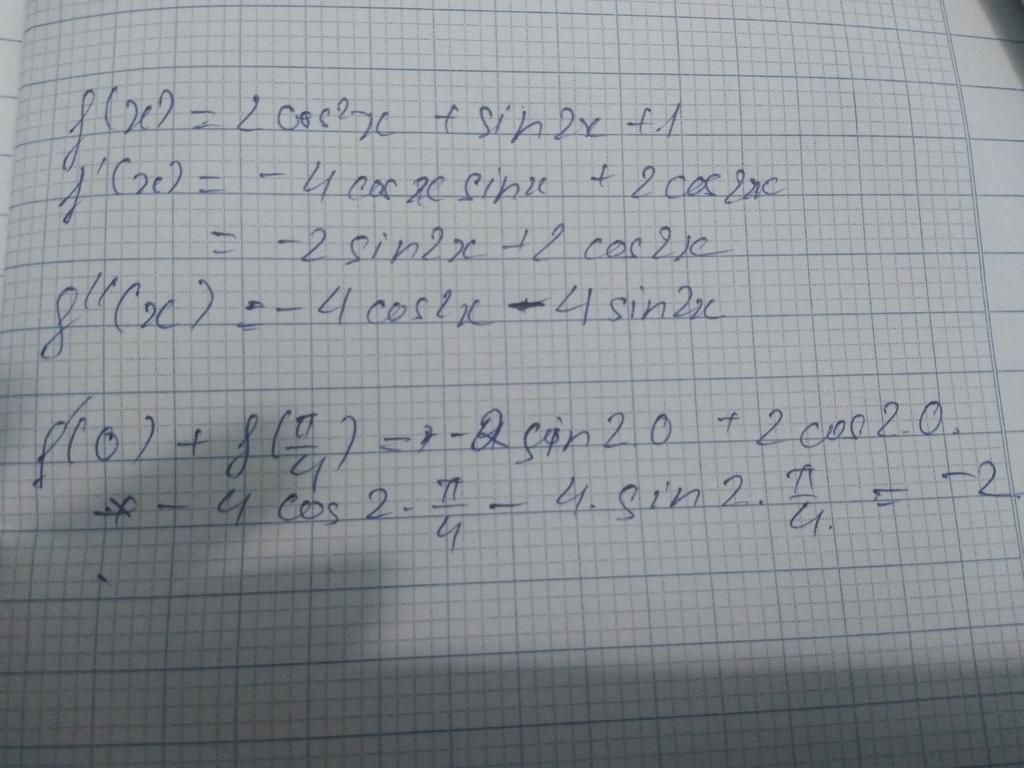 f(x) = 2 cos²x + sin2x + 1
f'(x) = - 4 cosx sinx + 2 cos2x
= -2 sin2x + 2 cos2x
f''(x) = - 4 cos2x - 4 sin2x
f'(0) + f(π/4) = - 2 sin2 0 + 2 cos2.0.
- 4 cos 2. π/4 - 4. sin 2. π/4. = -2.